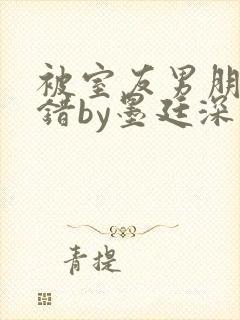 被室友男朋
错by墨廷深
青提